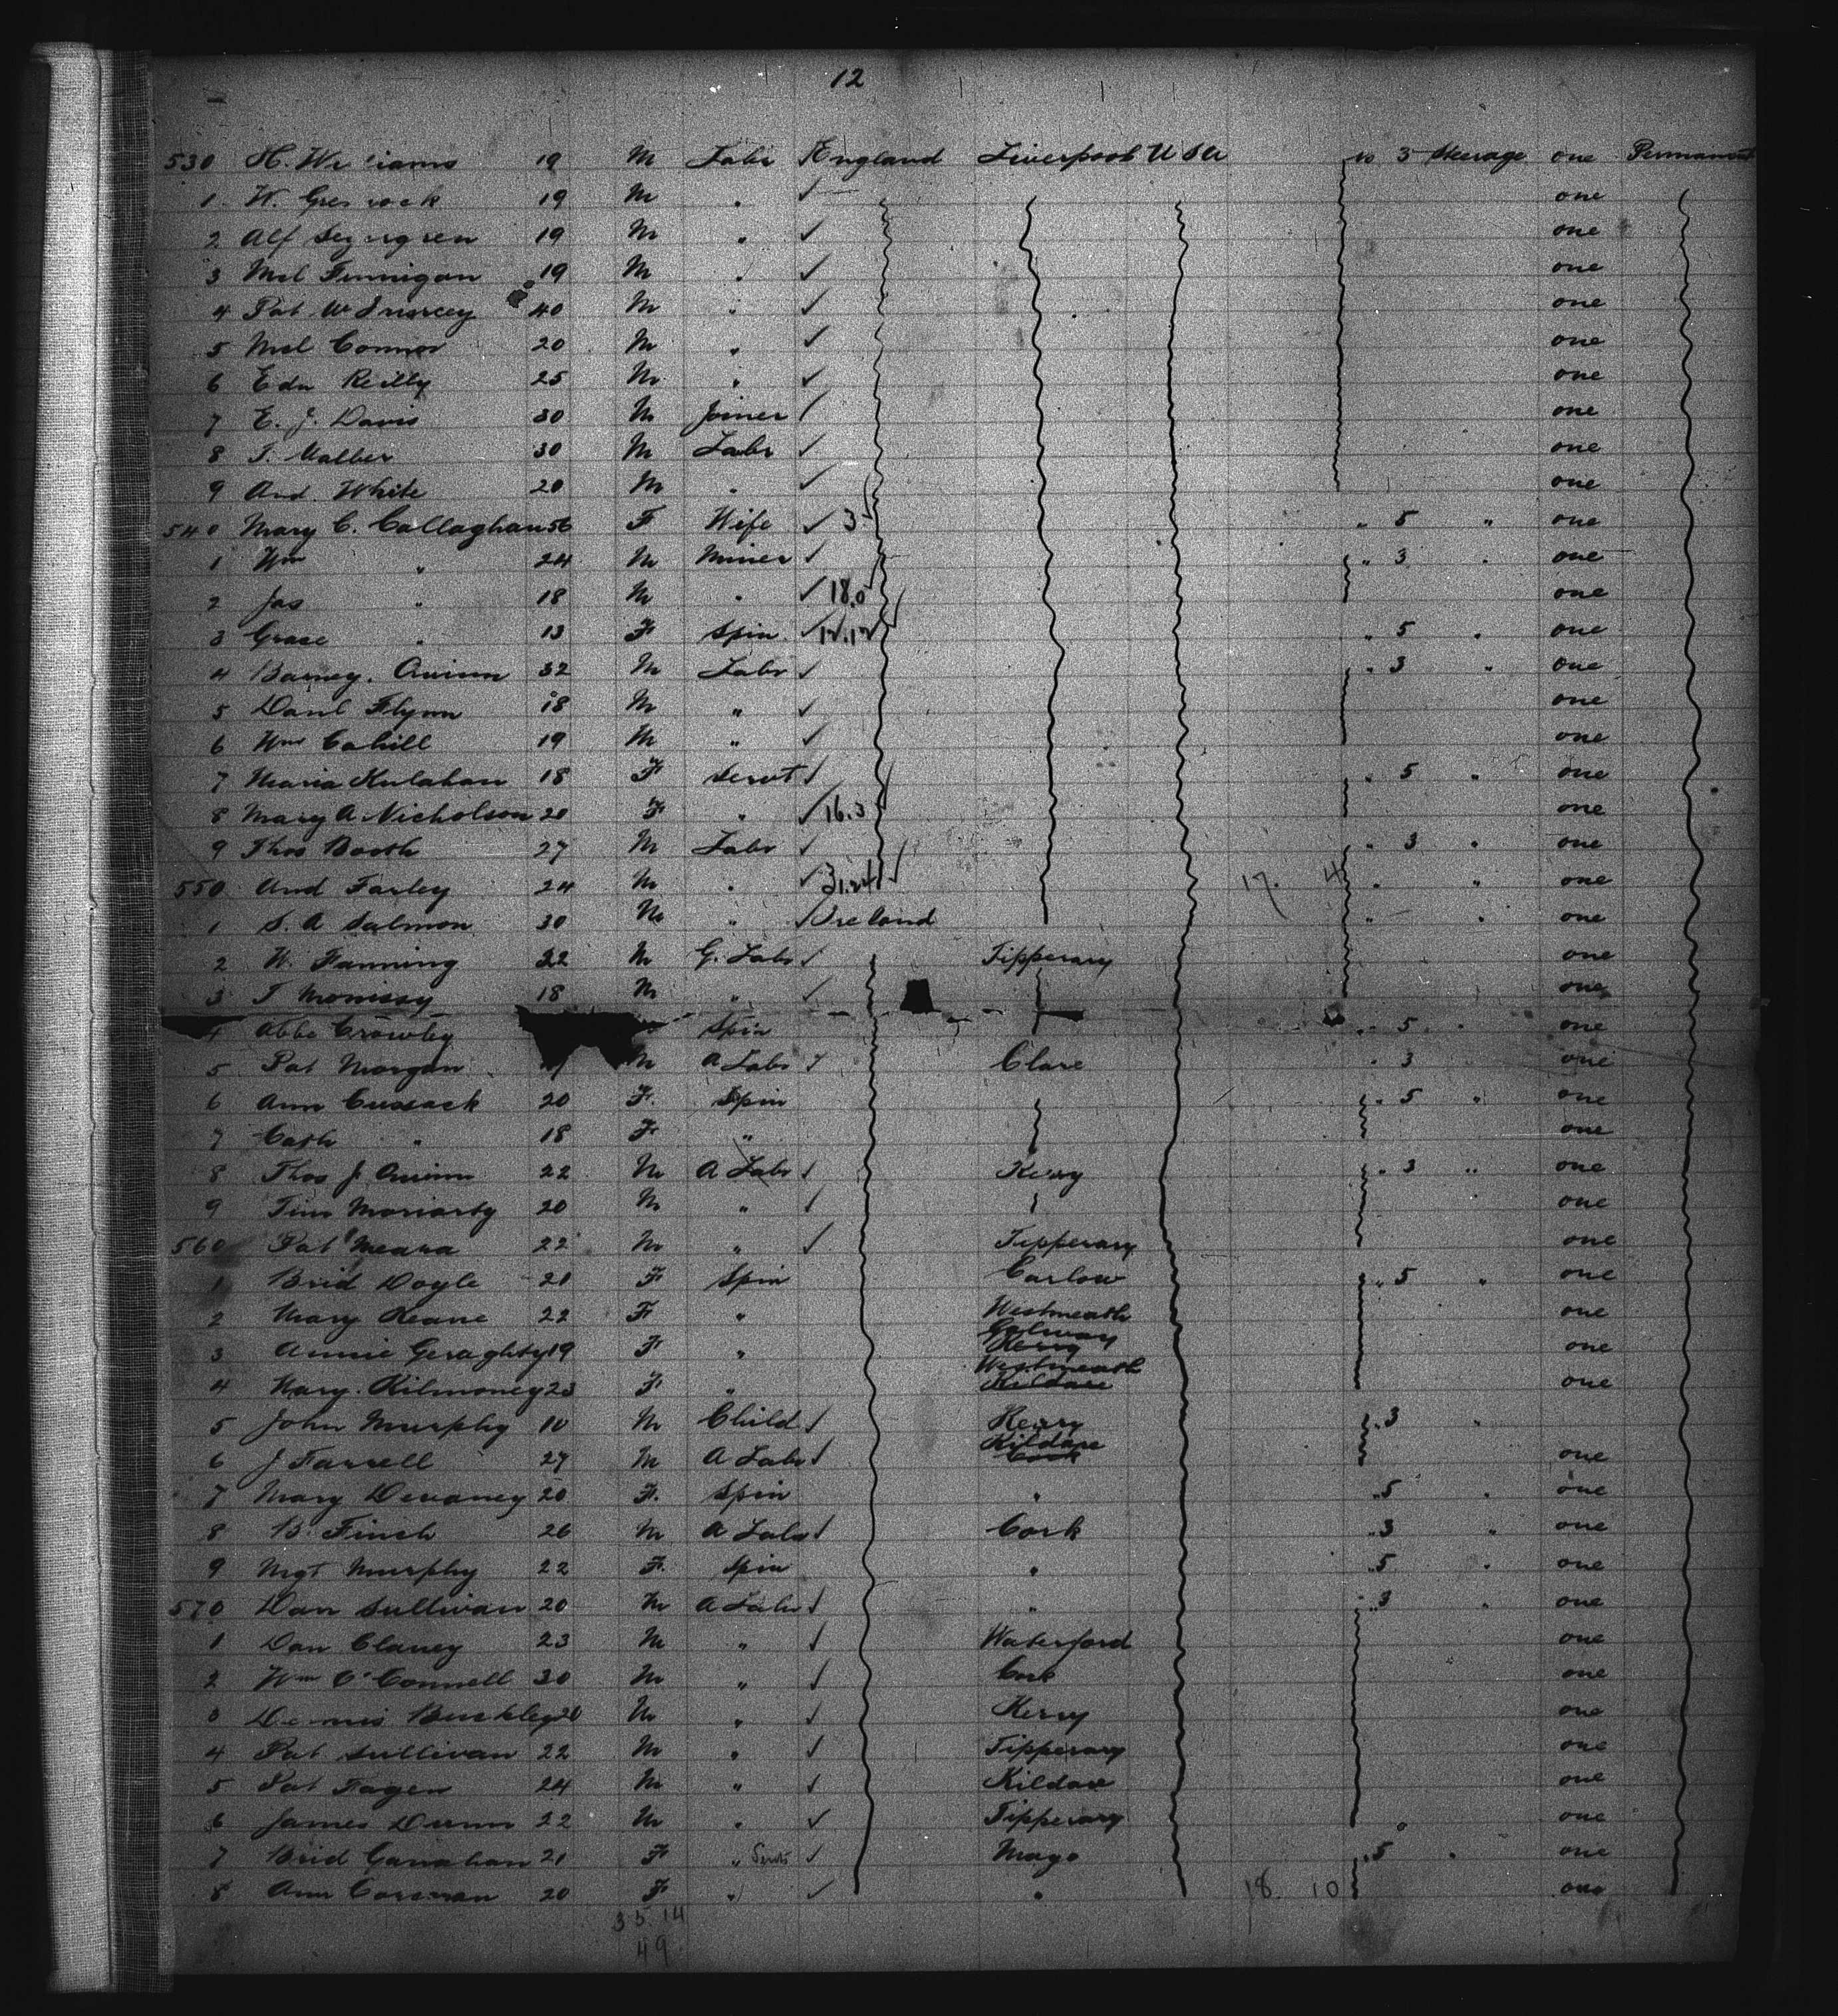 12
530 H. Williams 19 M Labr England Liverpool U S A No 3 Steerage one Permanent
1 W. 19 M " ✓ one
2 Alf 19 M " ✓ one
3 Mcl Finnigan 19 M " ✓ one
4 Pat W 40 M " ✓ one
5 Mcl Connor 20 M " ✓ one
6 Edw Reilly 25 M " ✓ one
7 E. J. Davis 30 M Joiner ✓ one
8 T. Malber 30 M Labr ✓ one
9 And. White 20 M " ✓ one
540 Mary C. Callaghan 56 F Wife ✓ 3 " 5 " one
1 Wm " 24 M Miner ✓ " 3 " one
2 Jas " 18 M " ✓ 18.0 one
3 Grace " 13 F Spin ✓ 12.12 " 5 " one
4 Barney. Quinn 32 M Labr ✓ " 3 " one
5 Danl Flynn 18 M " ✓ one
6 Wm Cahill 19 M " ✓ one
7 Maria Hulahan 18 F Servt ✓ " 5 " one
8 Mary A Nicholson 20 F " ✓ 16.3 one
9 Thos Booth 27 M Labr ✓ " 3 " one
550 And Farley 24 M " ✓ 31.24 17. 4 " " one
1 S. A Salmon 30 M " ✓ Ireland " " one
2 W. Fanning 22 M G. Labr ✓ Tipperary one
3 T Morrissy 18 M " ✓ one
4 Abbe Crowley Spin " 5 " one
5 Pat Morgan M A Labr ✓ Clare " 3 one
6 Ann Cussack 20 F. Spin " 5 " one
7 Cath " 18 F " one
8 Thos J Quinn 22 M A Labr ✓ Kerry " 3 " one
9 Tim Moriarty 20 M " ✓ one
560 Pat Meara 22 M " ✓ Tipperary one
1 Brid Doyle 21 F Spin Carlow " 5 " one
2 Mary Keane 22 F " Westmeath one
Galway
3 Annie Geraghty 19 F " Kerry one
Westmeath
4 Mary. Kilmoney 23 F " Kildare one
5 John Murphy 10 M Child ✓ Kerry " 3 "
Kildare
6 J Farrell 27 M A Labr ✓ Cork one
7 Mary Devaney 20 F. Spin " " 5 " one
8 B. Finch 26 M A Labr ✓ Cork " 3 " one
9 Mgt Murphy 22 F. Spin " " 5 " one
570 Dan Sullivan 20 M A Labr ✓ " " 3 " one
1 Dan Clancy 23 M " ✓ Waterford one
2 Wm O'Connell 30 M " ✓ Cork one
3 Dennis Buckley 20 M " ✓ Kerry one
4 Pat Sullivan 22 M " ✓ Tipperary one
5 Pat Fagen 24 M " ✓ Kildare one
6 James Dunn 22 M " ✓ Tipperary one
7 Brid Ganahan 21 F " Servts ✓ Mayo " 5 " one
8 Ann 20 F " ✓ " 18. 10 one
35.14
49